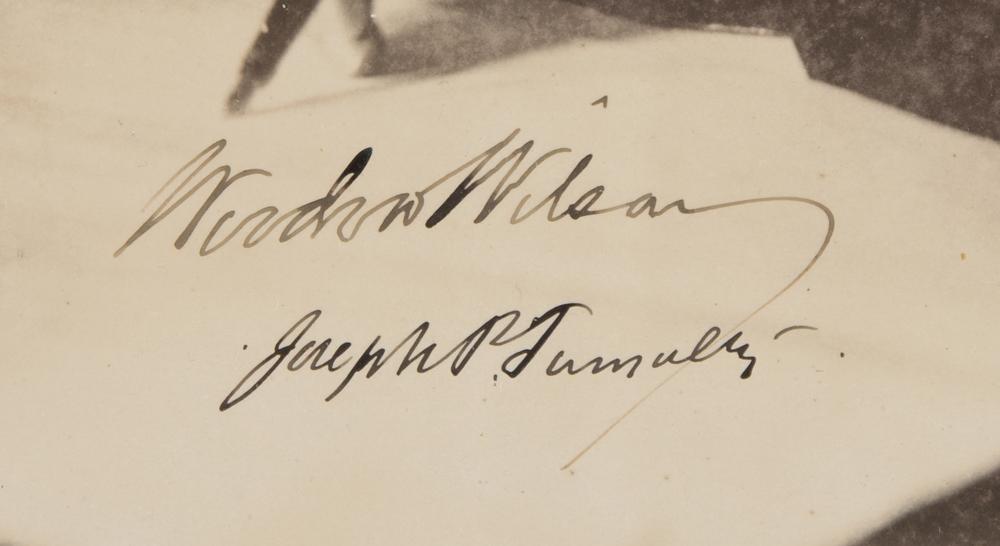 Woodrow Wilson
Joseph P. Tumulty